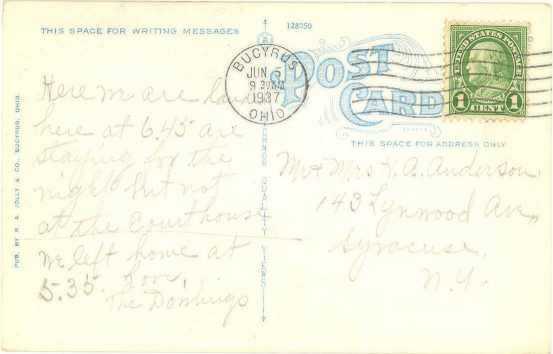 128050
THIS SPACE FOR WRITING MESSAGES
BUCYRUS
JUN 5
9 30AM
1937
OHIO
POST CARD
UNITED STATES POSTAGE
1 CENT 1
THIS SPACE FOR ADDRESS ONLY
Here we are
here at 6.45 are
staying for the
night but not
at the Courthouse
We left home at
5.35. Love,
The
Mr & Mrs V. A. Anderson
143 Lynwood Ave,
Syracuse,
N.Y.
PUB. BY R. A. JOLLY & CO., BUCYRUS, OHIO.
QUALITY VIEWS